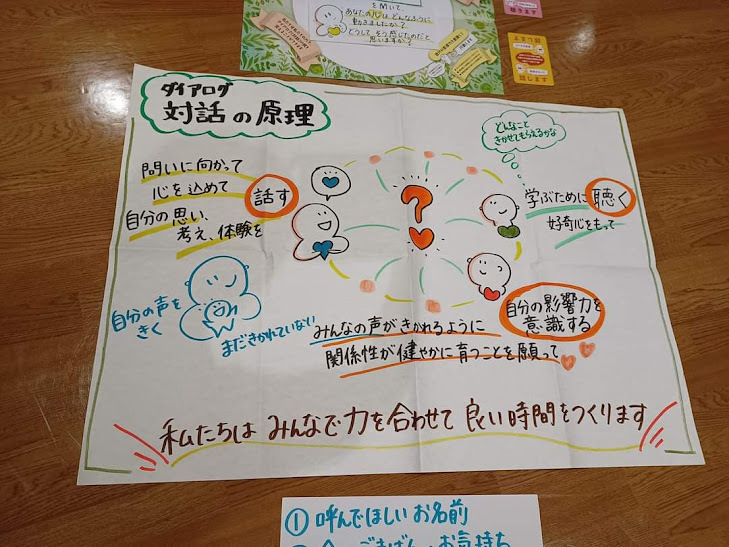 を聞いて、
あなたの心は どんなふうに
動きましたか?
どうして、そう感じたのだと
思いますか?
ダイアログ
対話の原理
問いに向かって
心を込めて
自分の思い、
考え、体験を
話す
どんなこと
きかせてもらえるかな
学ぶために 聴く
好奇心をもって
?
自分の声を
きく
まだきかれていない
みんなの声がきかれるように
関係性が健やかに育つことを願って
自分の影響力を
意識する
私たちは みんなで力を合わせて 良い時間をつくります
① 呼んでほしい お名前